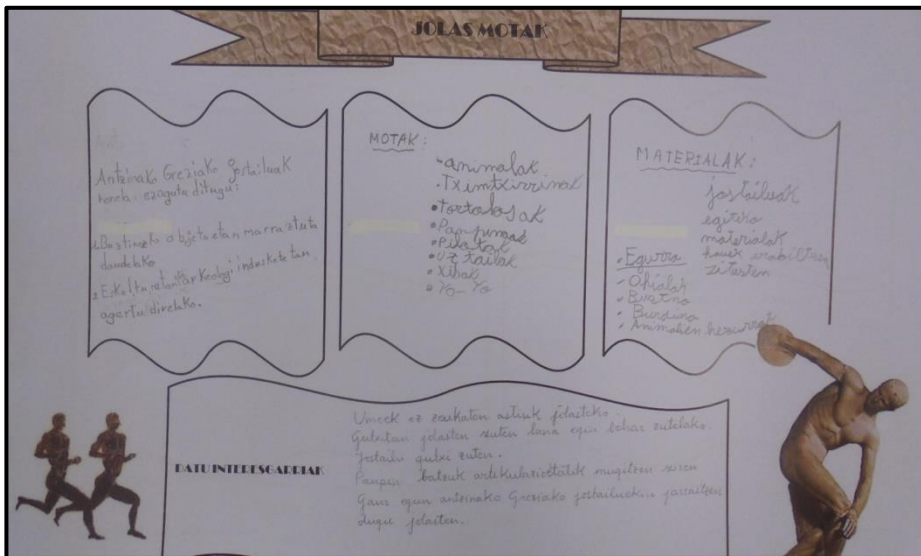 JOLAS MOTAK
Antzinako Greziako jostailuak
ezagutu ditugu:
objetoetan marraztuta
daudelako
2 Eskulturetan arkeologi indusketetan
agertu direlako.
MOTAK:
- animalak
- Tximtxirrinak
• Tortolosak
•
• Pilotak
• Uztailak
• Xibak
• Yo-Yo
MATERIALAK:
jostailuak
egiteko
materialak
hauek erabiltzen
zituzten
- Egurra
- Ohialak
- Buztina
- Burdina
- Animalien hezurrak
DATU INTERESGARRIAK
Umeek ez zeukaten astirik jolasteko.
Gutxitan jolasten zuten lana egin behar zutelako.
Jostailu gutxi zuten.
Panpin batzuk artikulazioetatik mugitzen ziren
Gaur egun antzinako Greziako jostailuekin jarraitzen
dugu jolasten.